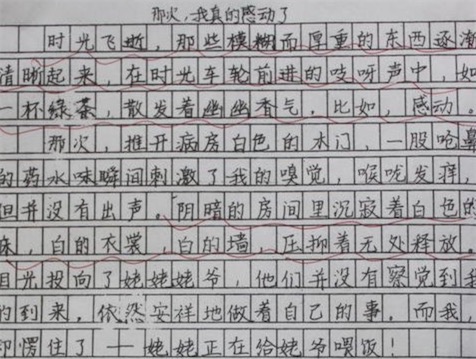 那次，我真的感动了
时光飞逝，那些模糊而厚重的东西逐渐
清晰起来，在时光车轮前进的吱呀声中，如
一杯绿茶，散发着幽幽香气。比如，感动
那次，推开病房白色的木门，一股呛鼻
的药水味瞬间刺激了我的嗅觉，喉咙发痒，
但并没有出声。阴暗的房间里沉寂着白色的
床，白的衣裳，白的墙，压抑着无处释放，
目光投向了姥姥姥爷，他们并没有察觉到我
的到来，依然安祥地做着自己的事，而我
却愣住了——姥姥正在给姥爷喂饭！